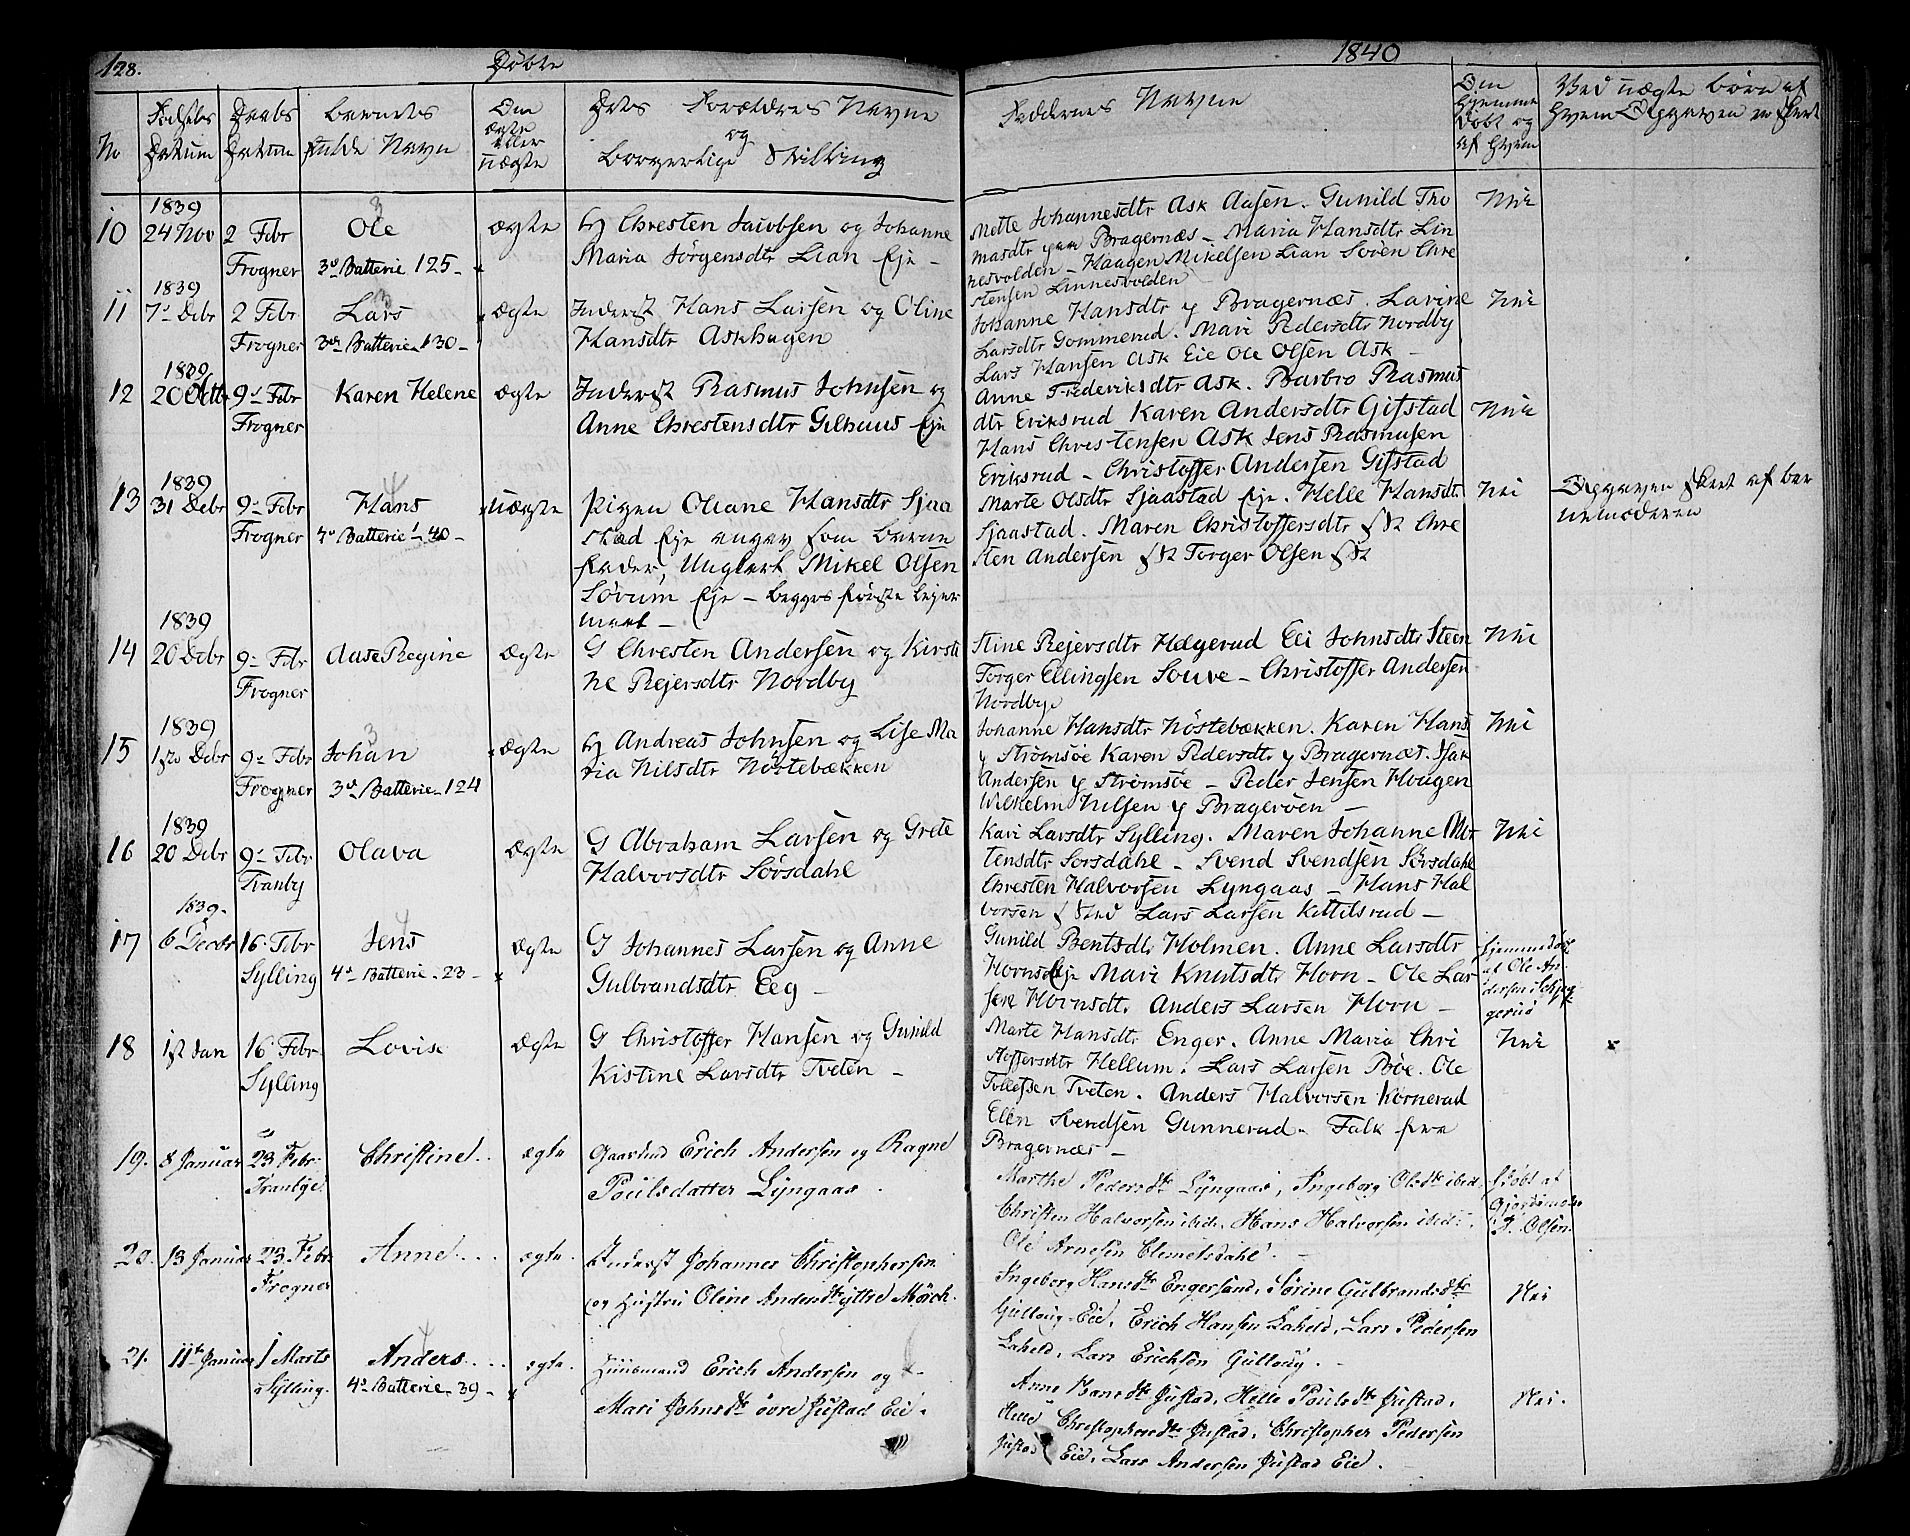 128.
Døbte
1840
No
Fødsels Datum
Daabs Datum
Barnets fulde Navn
Om ægte eller uægte
Dets Forældres Navne og Borgerlige Stilling
Faddernes Navne
Om hjemme Døbt og af hvem
Ved uægte Børn af hvem Opgaven er skeet
10
1839
24 Nov
2 Febr
Frogner
3
Ole
3d Batterie 125 -
ægte
Chresten Jacobsen og Johanne
Maria Jørgensdtr Lian Eje -
Mette Johannesdtr Ask Aasen. Gunild Tho
masdtr paa Bragernæs - Maria Hansdtr Lin
nesvolden - Haagen Mikelsen Lian Søren Chre
stensen Linnesvolden
Nei
11
1839
7de Debr
2 Febr
Frogner
3
Lars
3die Batterie - 130 -
Ægte
Inderst Hans Larsen og Oline
Hansdtr Askhagen
Johanne Hansdtr y Bragernæs. Lavine
Larsdtr Gommerud. Mari Pedersdtr Nordby
Lars Hansen Ask Eie Ole Olsen Ask -
Nei
12
1839
20 Octbr
9de Febr
Frogner
Karen Helene
Ægte
Inderst Rasmus Johnsen og
Anne Chrestensdtr Gilhuus Eje
Anne Frederiksdtr Ask. Barbro Rasmus
dtr Eriksrud Karen Andersdtr Gifstad
Hans Christensen Ask Jens Rasmusen
Eriksrud - Christoffer Andersen Gifstad
Nei
13
1839
31 Debr
9de Febr
Frogner
4
Hans
4de Batterie - 40 -
Uægte
Pigen Oliane Hansdtr Sjaa
stad Eje angav som Barne
Fader, Ungkarl Mikel Olsen
Sørum Eje - Begges første Lejer
maal -
Marte Olsdtr Sjaastad Eje. Helle Hansdtr
Sjaastad. Maren Christoffersdtr Chre
sten Andersen Torger Olsen
Nei
Opgaven skeet af Bar
nemoderen
14
1839
20 Debr
9de Febr
Frogner
Aase Regine
Ægte
G Chresten Andersen og Kirsti
ne Rejersdtr Nordby
Stine Rejersdtr Hægerud Eli Johnsdtr Steen
Torger Ellingsen Souve - Christoffer Andersen
Nordbye
Nei
15
1839
1ste Debr
9de Febr
Frogner
3
Johan
3d Batterie - 124
Ægte
Andreas Johnsen og Lise Ma
ria Nilsdtr Nøstebækken
Johanne Hansdtr Nøstebækken. Karen Hans
y Strømsøe Karen Pedersdtr y Bragernæs. Isak
Andersen y Strømsøe - Peder Jensen Hougen
Wilhelm Nilsen y Bragerøen -
Nei
16
1839
20 Debr
9de Febr
Tranby
Olava
Ægte
G Abraham Larsen og Grete
Halvorsdtr Sørsdahl
Kari Larsdtr Sylling. Maren Johanne Mor
tensdtr Sorsdahl - Svend Svendsen Sørsdahl
Chresten Halvorsen Lyngaas - Hans Hal
vorsen Lars Larsen Kittilsrud -
Nei
17
1839.
6 Decbr
16. Febr
Sylling
4
Jens
4de Batterie - 23 -
ægte
G Johannes Larsen og Anne
Gulbrandsdtr Eeg -
Gunild Bentsdtr Holmen. Anne Larsdtr
Hornseje Mari Knutsdtr Horn - Ole Lar
sen Hornsdtr. Anders Larsen Horn -
hjemmedøbt
af Ole An
dersen Schjeg
gerud
18
1st Jan
16 Febr
Sylling
Lovise
Ægte
G Christoffer Hansen og Gunild
Kistine Larsdtr Tveten -
Marte Hansdtr Enger. Anne Maria Chri
stoffersdtr Hellum. Lars Larsen Bøe. Ole
Tollefsen Tveten. Anders Halvorsen Kornerud
Elen Svendsen Gunnerud. Falk fra
Bragernæs -
Nei
19.
8 Januar
23 Febr.
Tranbye
Christine.
ægte
Gaardmd Erich Andersen og Ragne
Poulsdatter Lyngaas.
Marthe Pedersdtr Lyngaas, Ingeborg Olsdtr ibid.
Christen Halvorsen ibid. Hans Halvorsen ibid.
Ole Arnesen Clemetsdahl. -
Døbt af
Gjordemoder
Olsen
20.
13 Januar
23 Febr.
Frogner
Anne.
ægte.
Inderst Johannes Christophersen
og Hustru Oline Andersdtr yttre Mörch.
Ingeborg Hansdtr Engersand, Sørine Gulbrandsdtr
Gulloug Eid, Erich Hansen Laheld, Lars Pedersen
Laheld, Lars Erichsen Gulloug. -
Nei
21.
11te Januar
1 Marts
Sylling.
4
Anders.
4de Batterie - 39 -
ægte.
Huusmand Erich Andersen og
Mari Johnsdtr övre Justad Eie.
Anne Hansdtr Justad, Helle Poulsdtr Justad,
Helle Christophersdtr Justad, Christopher Pedersen
Justad Eie, Lars Andersen Justad Eie.
Nei.